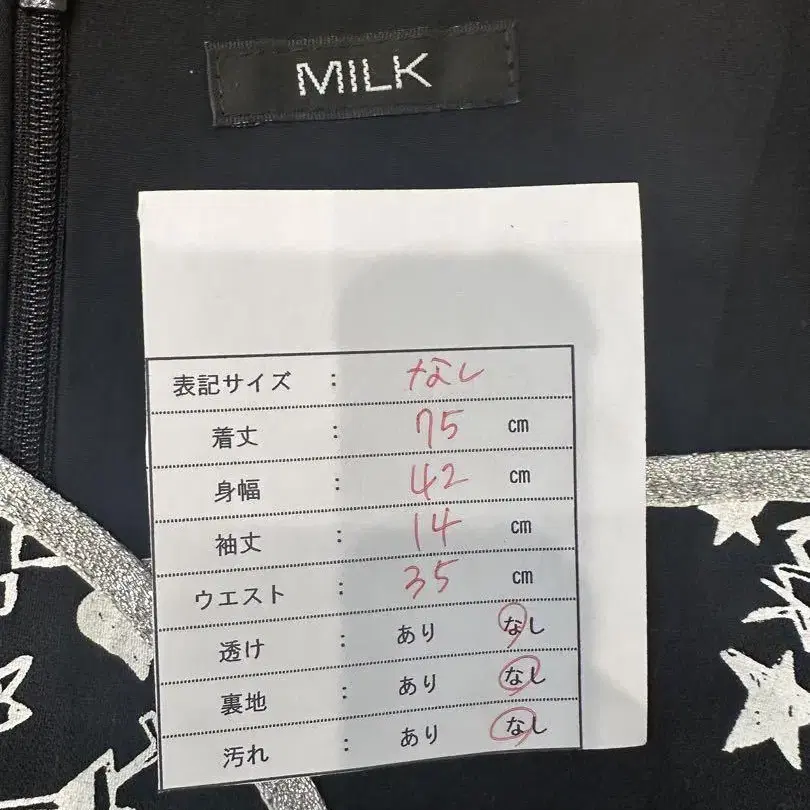 MILK
表記サイズ : なし
着丈 : 75 cm
身幅 : 42 cm
袖丈 : 14 cm
ウエスト : 35 cm
透け : あり なし
裏地 : あり なし
汚れ : あり なし